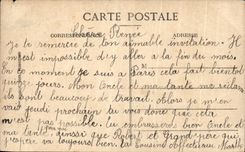 CARTE POSTALE
CORRESPONDANCE ADRESSE
Chère Renée
Je te remercie de ton aimable invitation. Il
m'est impossible d'y aller à la fin du mois.
En ce moment je suis à Paris cela fait bientôt
quinze jours. Mon Oncle et ma tante
ont beaucoup de travail. Alors je m'en
vais jeudi prochain tu vois donc que cela
m'est pas possible. Tu embrasseras bien Oncle et
ma tante ainsi que Robert et Grand'père qui
j'espère va toujours bien. Ta cousine